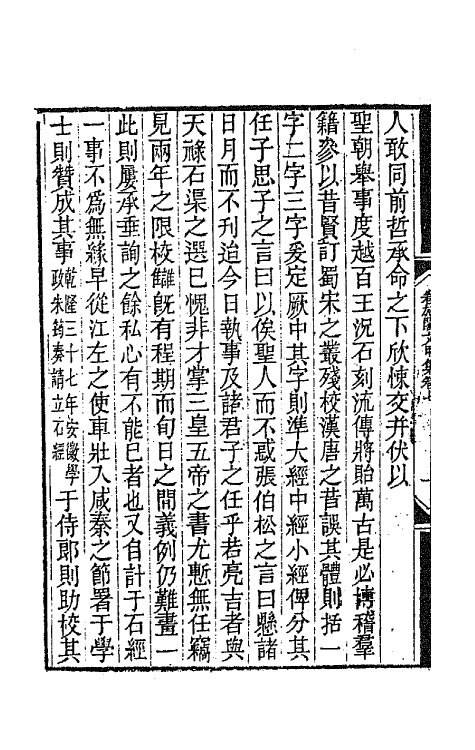 人敢同前哲承命之下欣悚交并伏以
聖朝舉事度越百王況石刻流傳將貽萬古是必博稽羣
籍參以昔賢訂蜀宋之叢殘校漢唐之昔誤其體則括一
字二字三字爰定厥中其字則準大經中經小經俾分其
任子思子之言曰以俟聖人而不惑張伯松之言曰懸諸
日月而不刊迨今日執事及諸君子之任乎若亮吉者與
天祿石渠之選已愧非才掌三皇五帝之書尤慙無任竊
見兩年之限校讎旣有程期而旬日之閒義例仍難畫一
此則屢承垂詢之餘私心有不能已者也又自計于石經
一事不爲無緣早從江左之使車壯入咸秦之節署于學
士則贊成其事乾隆三十七年安徽學政朱筠奏請立石經于侍郎則助校其